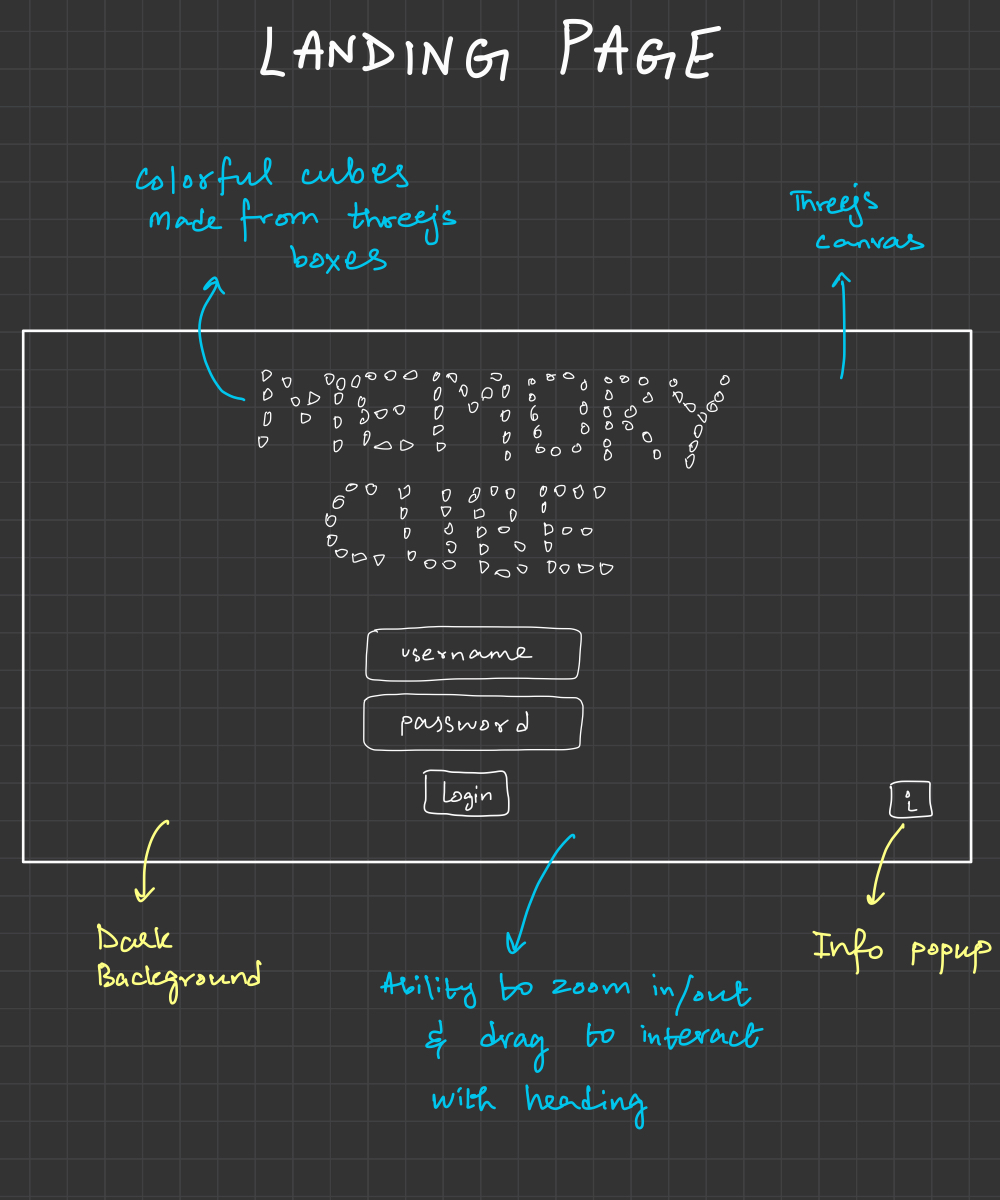 LANDING PAGE
Colorful cubes
Made from threejs
boxes
Threejs
canvas
MEMORY
CUBE
username
password
Login
i
Dark
Background
Info popup
Ability to zoom in/out
& drag to interact
with heading